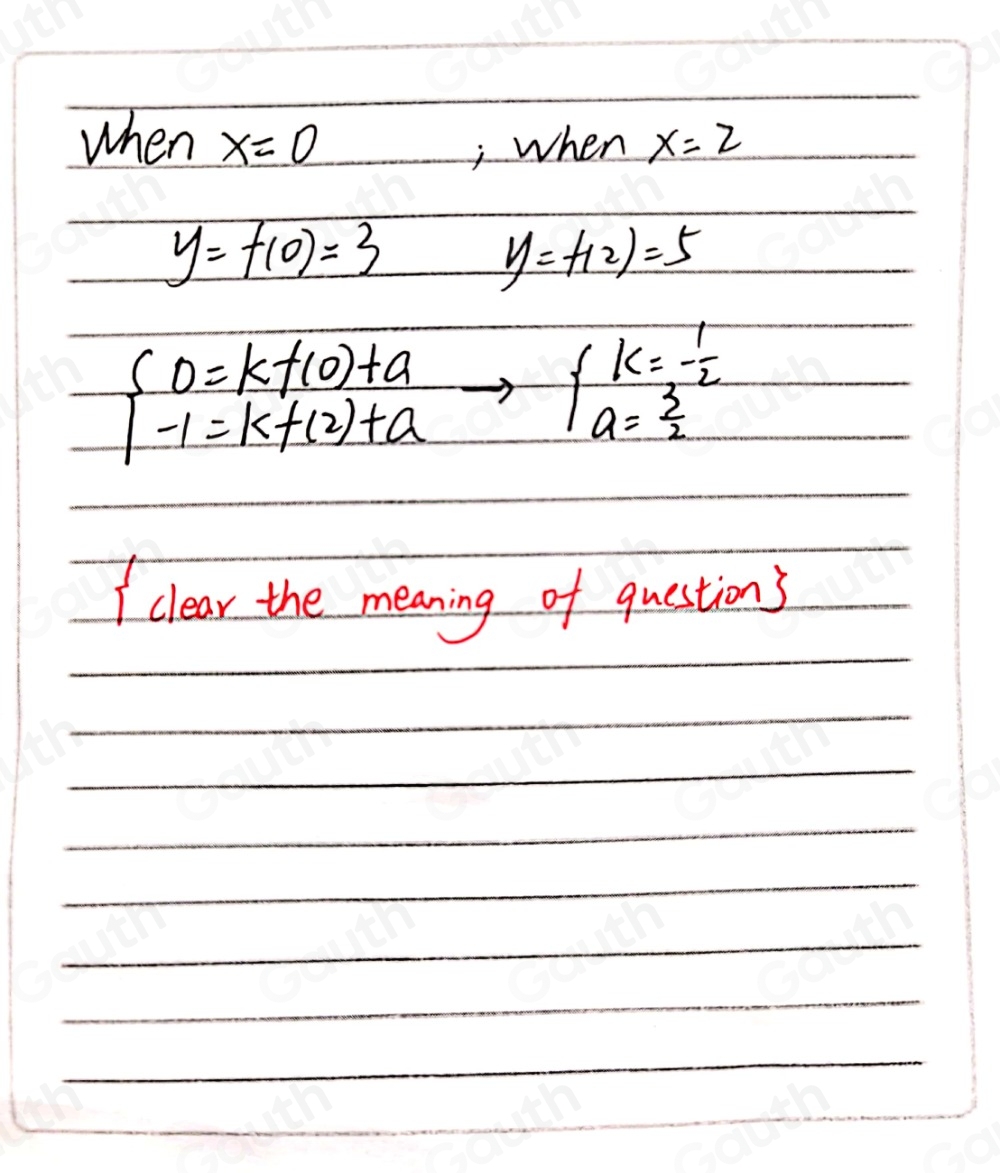 When x=0 ; when x=2
y=f(0)=3 y=f(2)=5
{ 0=kf(0)+a → { k=-1/2
-1=kf(2)+a a=3/2
{clear the meaning of question}
Gauth